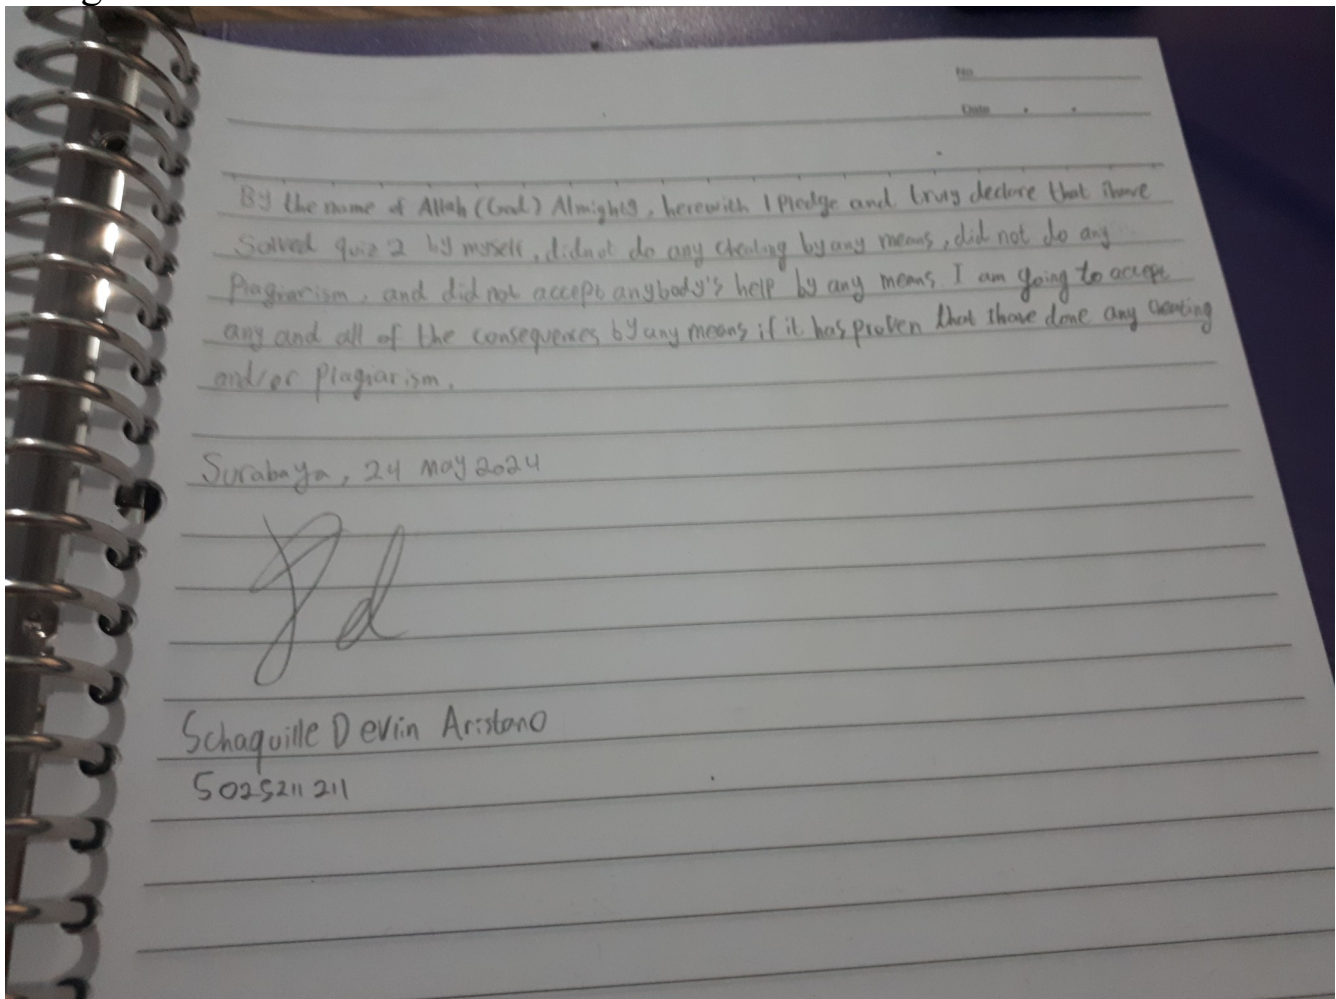 No
Date . .
By the name of Allah (God) Almighty, herewith I pledge and truly declare that i have
Solved quiz 2 by myself, did not do any cheating by any means, did not do any
Plagiarism, and did not accept anybody's help by any means. I am going to accept
any and all of the consequences by any means if it has proven that i have done any cheating
and/or plagiarism.
Surabaya, 24 May 2024
Schaquille Devlin Aristano
5025211211